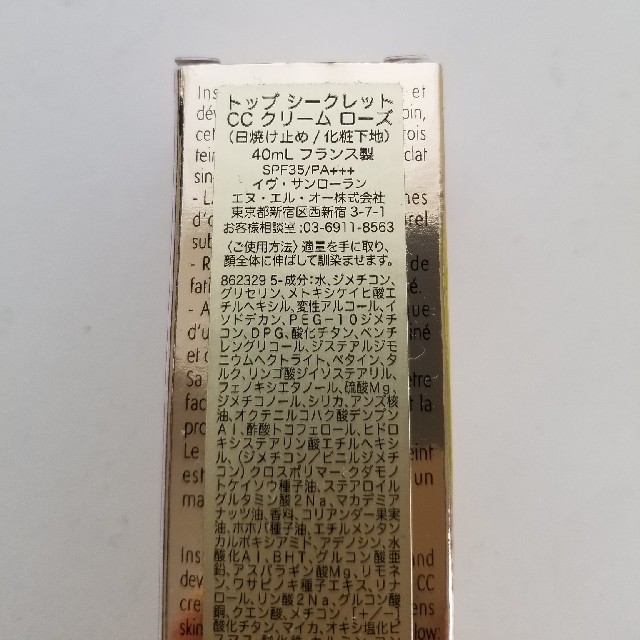 トップ シークレット
CC クリーム ローズ
(日焼け止め / 化粧下地)
40mL フランス製
SPF35/PA+++
イヴ・サンローラン
エヌ・エル・オー株式会社
東京都新宿区西新宿 3-7-1
お客様相談室:03-6911-8563
〈ご使用方法〉適量を手に取り、
顔全体に伸ばして馴染ませます。
862329 5-成分:水、ジメチコン、
グリセリン、メトキシケイヒ酸エ
チルヘキシル、変性アルコール、イ
ソドデカン、PEG-10ジメチ
コン、DPG、酸化チタン、ペンチ
レングリコール、ジステアルジモ
ニウムヘクトライト、ベタイン、タ
ルク、リンゴ酸ジイソステアリル、
フェノキシエタノール、硫酸Mg、
ジメチコノール、シリカ、アンズ核
油、オクテニルコハク酸デンプン
Al、酢酸トコフェロール、ヒドロ
キシステアリン酸エチルヘキシ
ル、(ジメチコン/ビニルジメチ
コン)クロスポリマー、クダモノ
トケイソウ種子油、ステアロイル
グルタミン酸2Na、マカデミア
ナッツ油、香料、コリアンダー果実
油、ホホバ種子油、エチルメンタン
カルボキシアミド、アデノシン、水
酸化Al、BHT、グルコン酸亜
鉛、アスパラギン酸Mg、リモネ
ン、ワサビノキ種子エキス、リナ
ロール、リン酸2Na、グルコン酸
銅、クエン酸、メチコン、[+/-]
酸化チタン、マイカ、オキシ塩化ビ